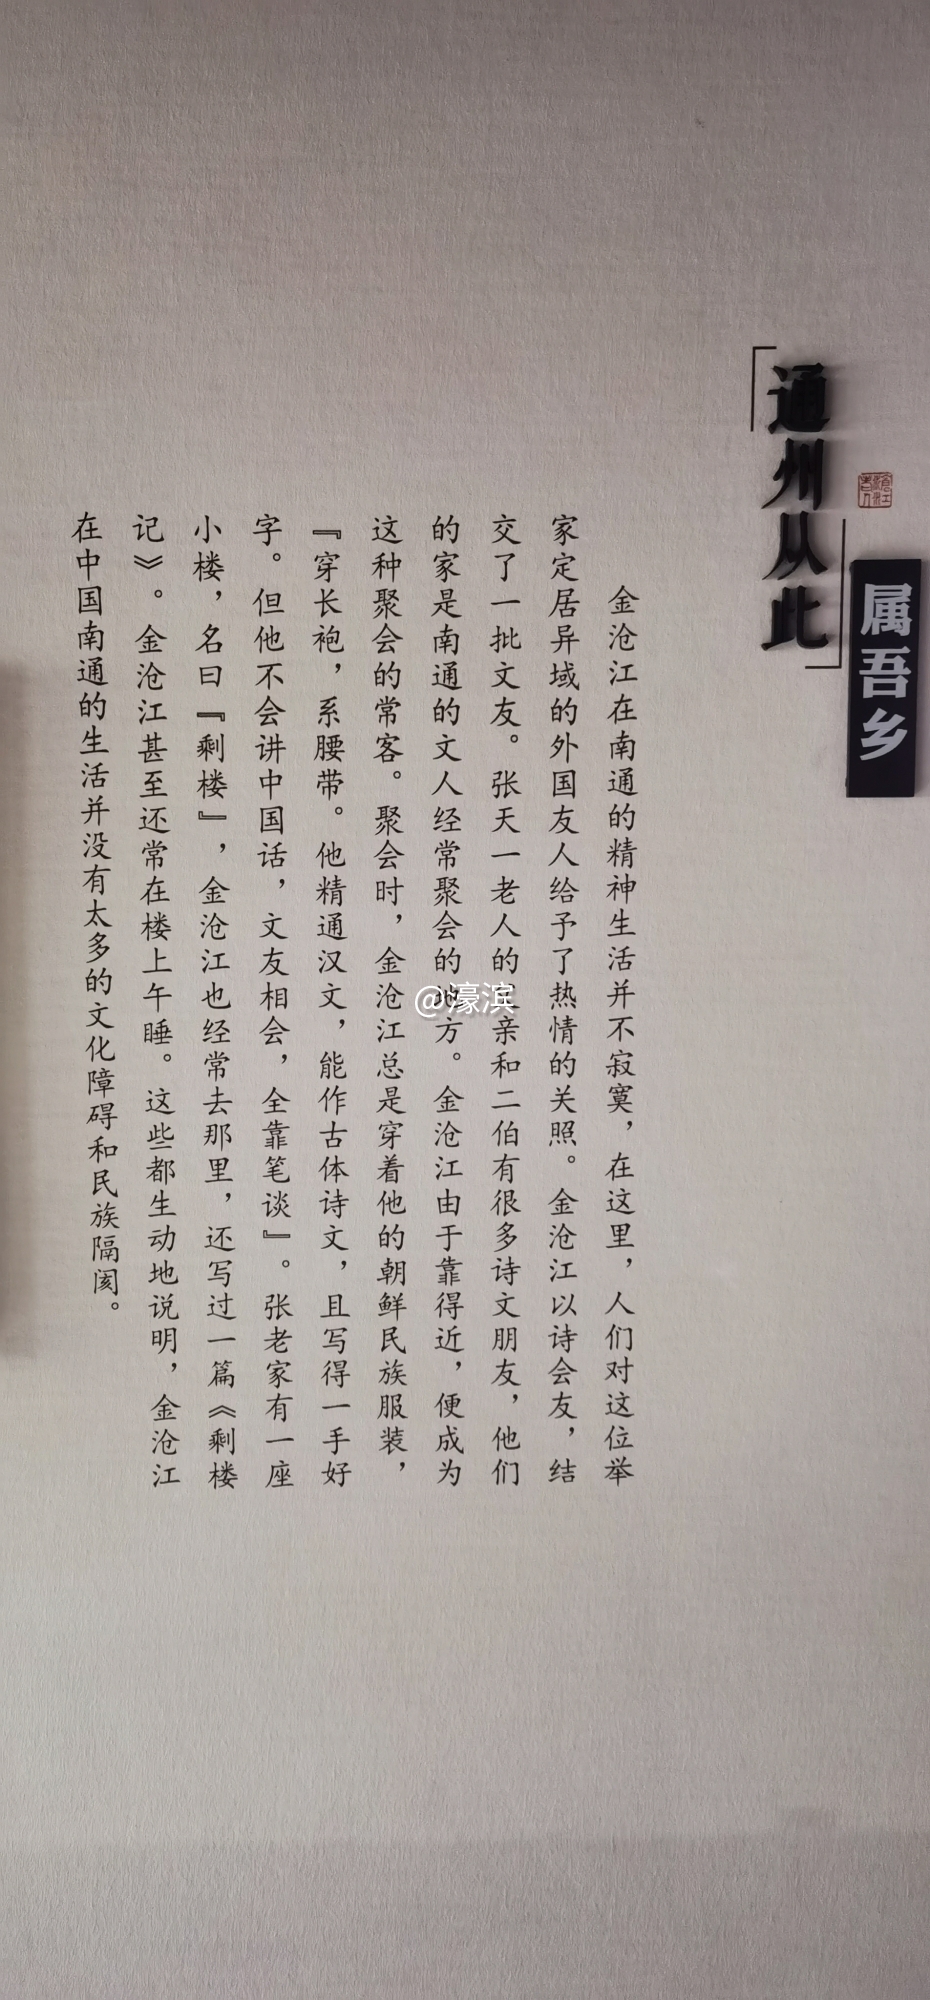 通州从此
属吾乡
金沧江在南通的精神生活并不寂寞，在这里，人们对这位举
家定居异域的外国友人给予了热情的关照。金沧江以诗会友，结
交了一批文友。张天一老人的父亲和二伯有很多诗文朋友，他们
的家是南通的文人经常聚会的地方。金沧江由于靠得近，便成为
这种聚会的常客。聚会时，金沧江总是穿着他的朝鲜民族服装，
『穿长袍，系腰带。他精通汉文，能作古体诗文，且写得一手好
字。但他不会讲中国话，文友相会，全靠笔谈』。张老家有一座
小楼，名曰『剩楼』，金沧江也经常去那里，还写过一篇《剩楼
记》。金沧江甚至还常在楼上午睡。这些都生动地说明，金沧江
在中国南通的生活并没有太多的文化障碍和民族隔阂。
@濠滨